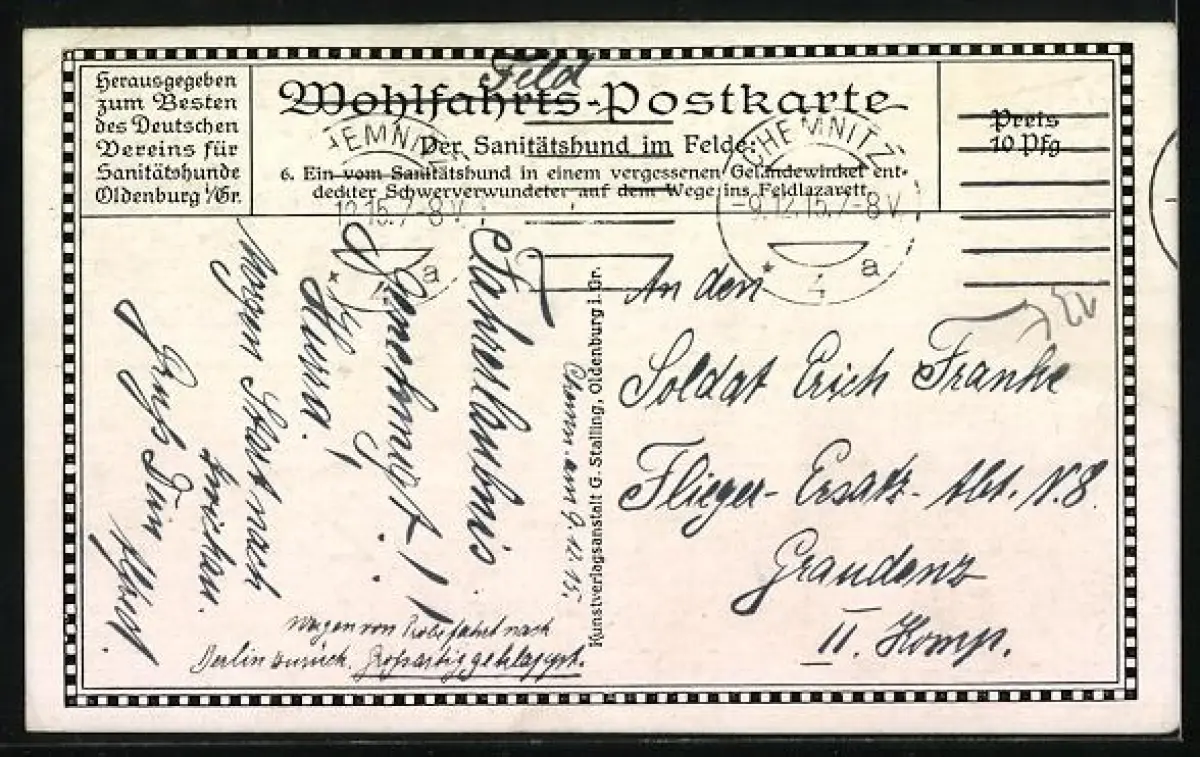 Herausgegeben
zum Besten
des Deutschen
Vereins für
Sanitätshunde
Oldenburg i/Gr.
Feld
Wohlfahrts-Postkarte
Der Sanitätshund im Felde:
6. Ein vom Sanitätshund in einem vergessenen Geländewinkel ent-
deckter Schwerverwundeter auf dem Wege ins Feldlazarett.
Preis
10 Pfg
CHEMNITZ
12.15.7-8V.
4 a
CHEMNITZ
-9.12.15.7-8V.
* 4 a
Chemn. am 9.12.15.
Fahrerlaubnis
Genehmigt!!
Hurra!
Morgen Start nach
Zwickau.
Gruß Dein
Wagen von Probefahrt nach
Berlin zurück. Großartig geklappt.
Kunstverlagsanstalt G. Stalling, Oldenburg i. Gr.
An den
Soldat Erich Franke
Flieger-Ersatz-Abt. N. 8.
Graudenz
II. Komp.